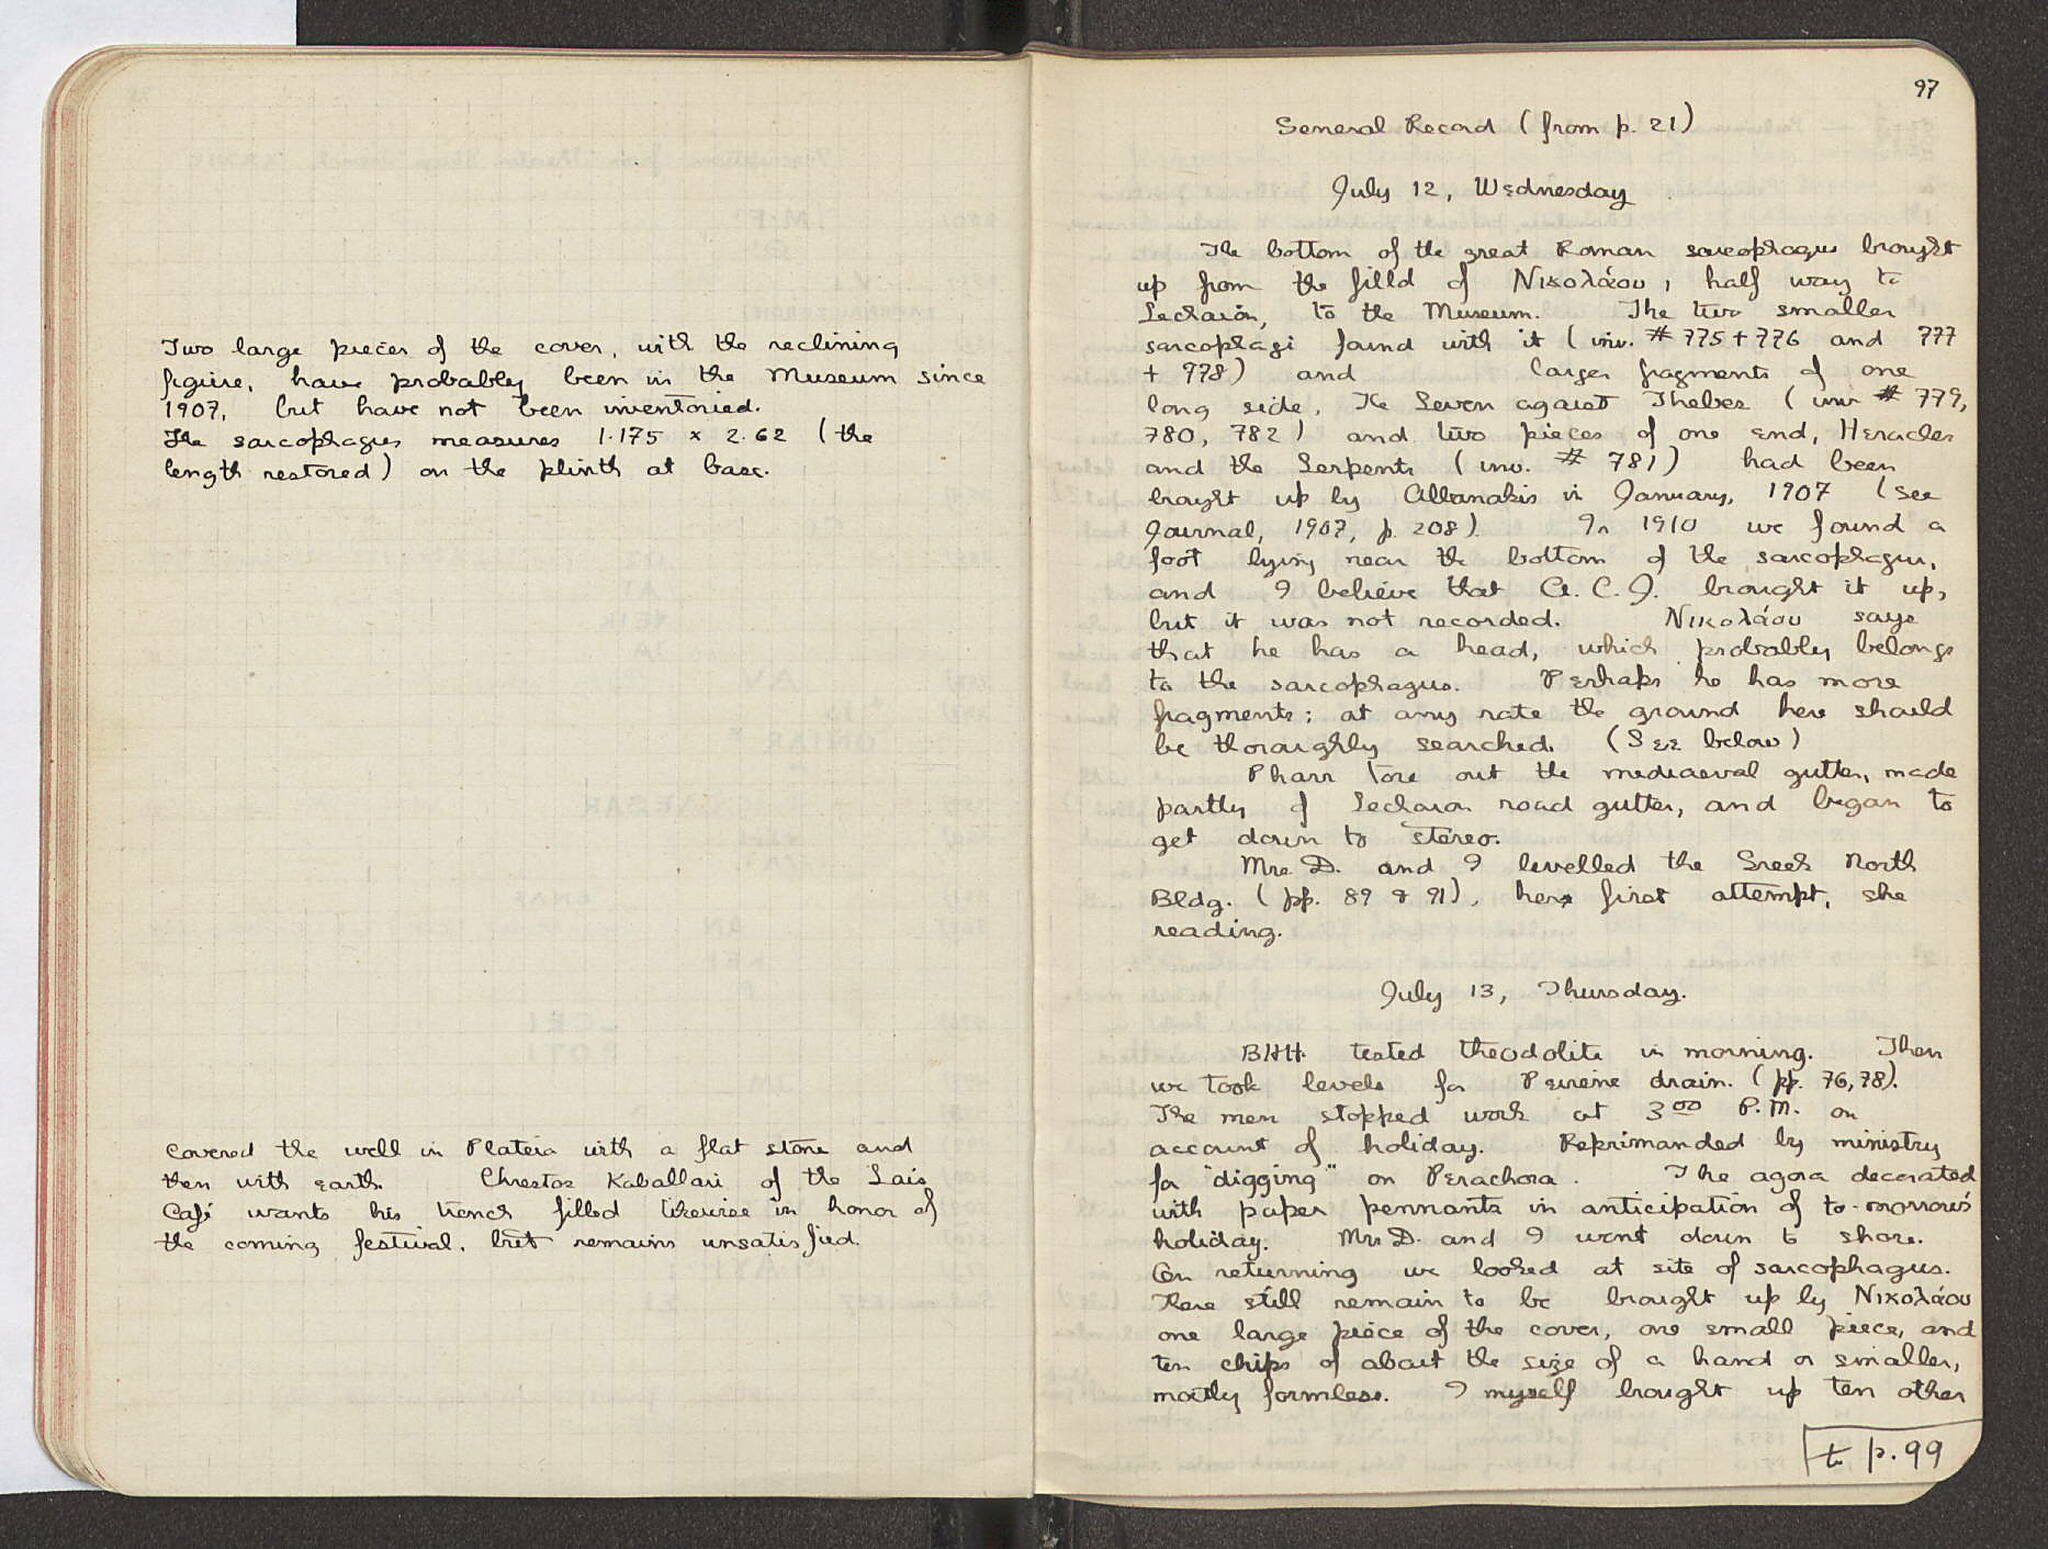 Two large pieces of the cover, with the reclining
figure, have probably been in the Museum since
1907, but have not been inventoried.
The sarcophagus measures 1.175 x 2.62 (the
length restored) on the plinth at base.
Covered the well in Plateia with a flat stone and
then with earth. Chrestos Kaballari of the Lais
Café wants his trench filled likewise in honor of
the coming festival, but remains unsatisfied.
97
General Record (from p. 21)
July 12, Wednesday
The bottom of the great Roman sarcophagus brought
up from the filld of Νικολάου, half way to
Lechaion, to the Museum. The two smaller
sarcophagi found with it (inv. # 775 + 776 and 777
+ 778) and larger fragments of one
long side, The Seven against Thebes (inv # 779,
780, 782) and two pieces of one end, Heracles
and the Serpents (inv. # 781) had been
brought up by Allanakis in January, 1907 (see
Journal, 1907, p. 208). In 1910 we found a
foot lying near the bottom of the sarcophagus,
and I believe that A. C. J. brought it up,
but it was not recorded. Νικολάου says
that he has a head, which probably belongs
to the sarcophagus. Perhaps he has more
fragments; at any rate the ground here should
be thoroughly searched. (See below)
Pharr tore out the mediaeval gutter, made
partly of Lechaion road gutter, and began to
get down to stereo.
Mrs. D. and I levelled the Greek North
Bldg. (pp. 89 & 91), her first attempt, she
reading.
July 13, Thursday.
BHH. tested theodolite in morning. Then
we took levels for Peirene drain. (pp. 76, 78).
The men stopped work at 3 00 P.M. on
account of holiday. Reprimanded by ministry
for "digging" on Perachora. The agora decorated
with paper pennants in anticipation of to-morrow's
holiday. Mrs D. and I went down to shore.
On returning we looked at site of sarcophagus.
There still remain to be brought up by Νικολάου
one large piece of the cover, one small piece, and
ten chips of about the size of a hand or smaller,
mostly formless. I myself brought up ten other
to p. 99